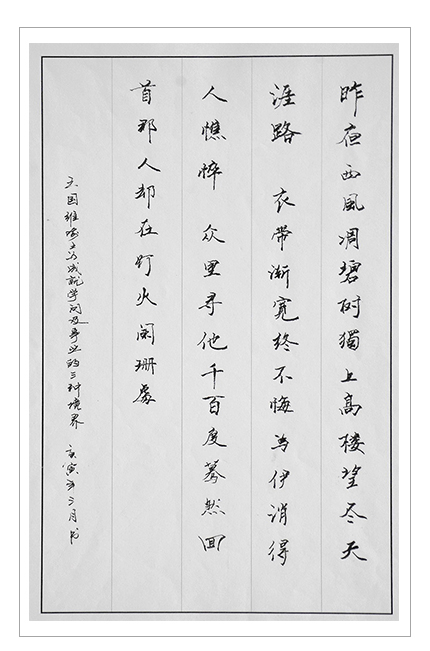 昨夜西風凋碧树獨上高楼望尽天
涯路 衣帶渐宽终不悔为伊消得
人憔悴 众里寻他千百度蓦然回
首那人却在灯火阑珊處
王国维喻之为成就学问及事业的三种境界 庚寅年三月书